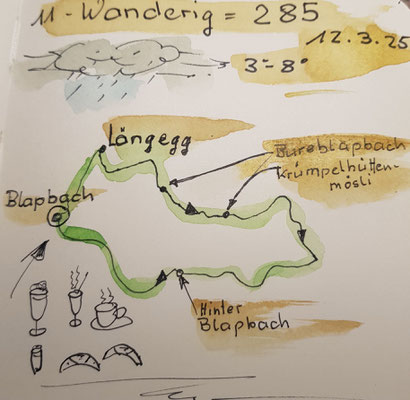 M-Wanderig = 285
12.3.25
3°-8°
Längegg
Bureblapbach
Krümpelhütten-
mösli
Blapbach
Hinter
Blapbach